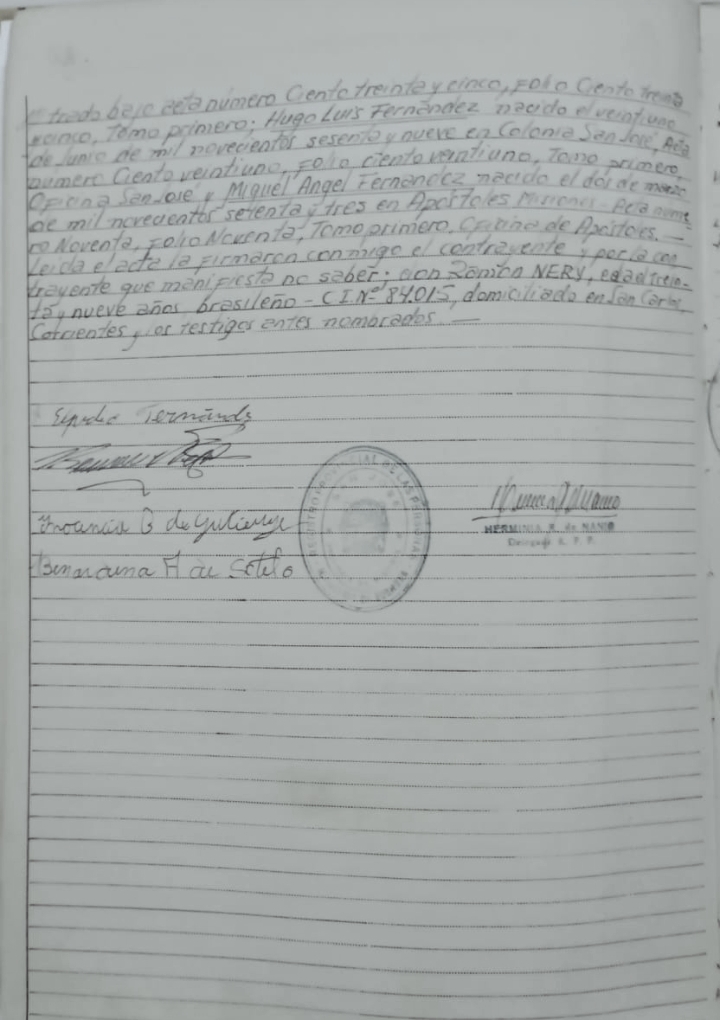 trado bajo acta número Ciento treinta y cinco, Folio Ciento treinta
y cinco, Tomo primero; Hugo Luis Fernández nacido el veintiuno
de Junio de mil novecientos sesenta y nueve en Colonia San José, Acta
número Ciento veintiuno, Folio ciento veintiuno, Tomo primero,
Oficina San José y Miguel Angel Fernández nacido el dos de marzo
de mil novecientos setenta y tres en Apóstoles Misiones - Acta núme-
ro Noventa, Folio Noventa, Tomo primero, Oficina de Apóstoles. —
Leida el acta la firmaron conmigo el contrayente y por la con
trayente que manifiesta no saber; don Ramón NERY, edad trein-
ta y nueve años brasileño - C.I. Nº 84.015, domiciliado en San Carlos,
Corrientes y los testigos antes nombrados. —
Fernández
B de Gutierrez
A de Sotelo
HERMINIA R. de NANIO